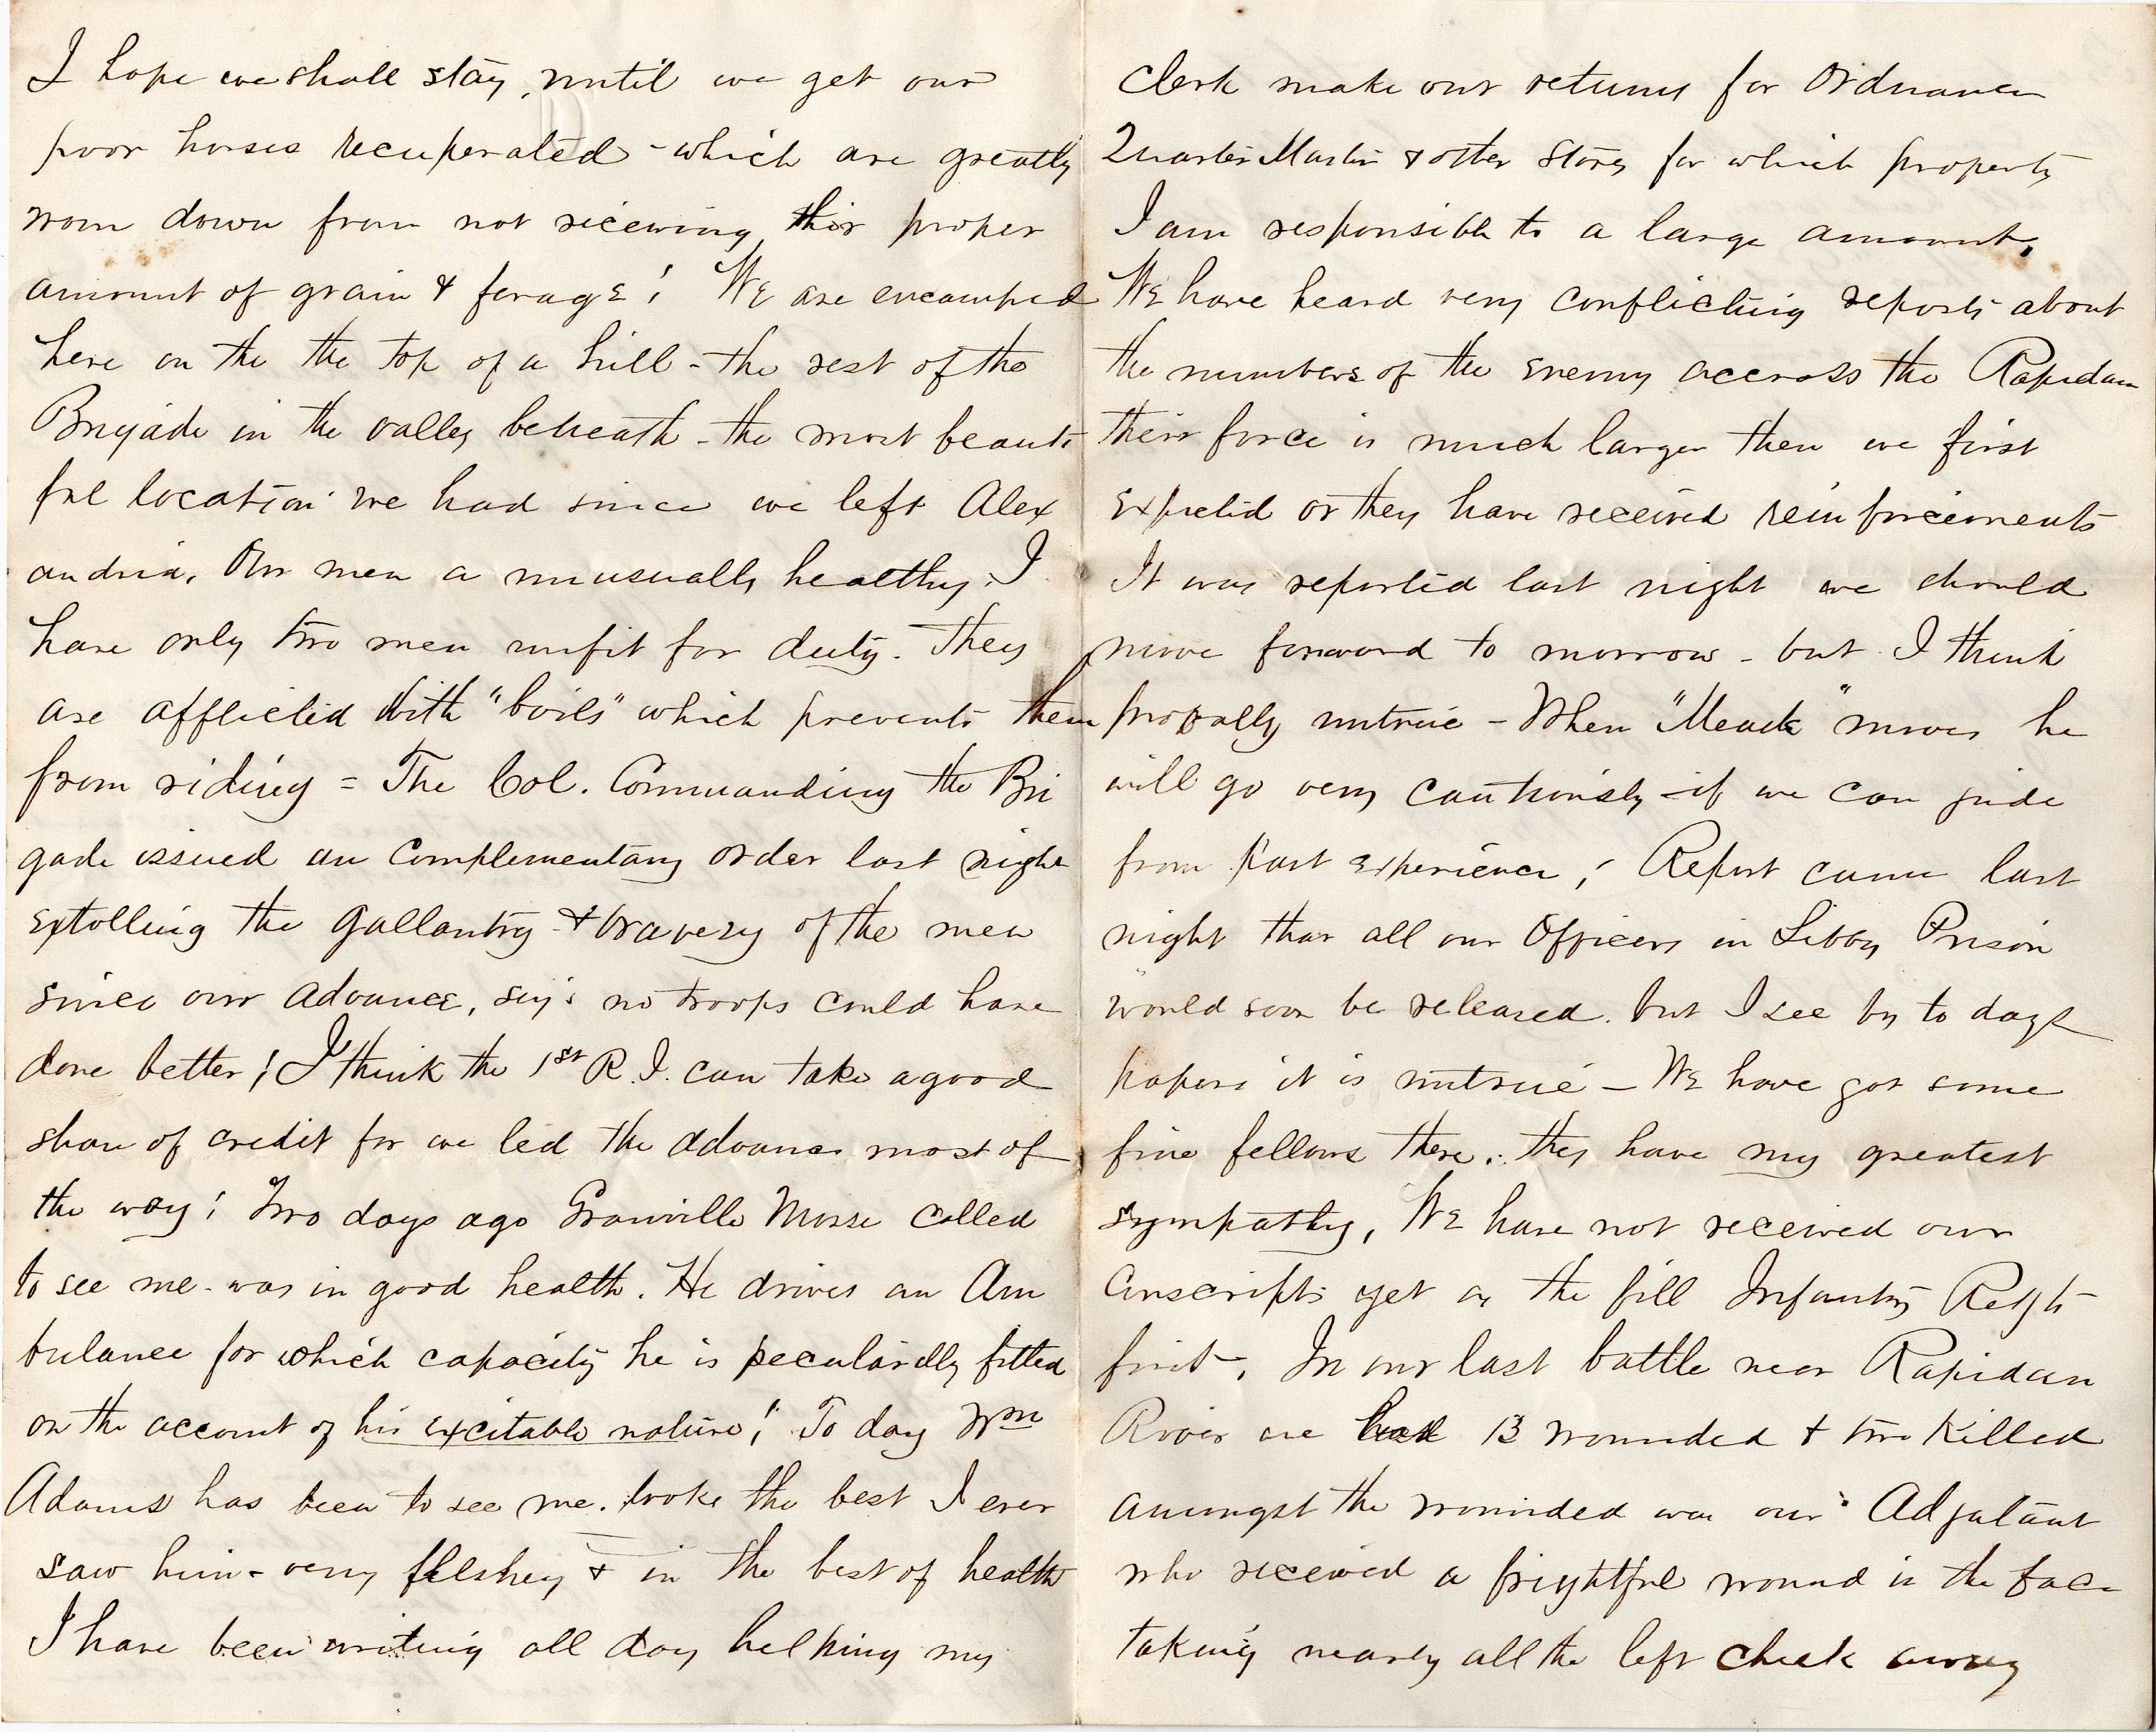 I hope we shall stay until we get our
poor horses recuperated - which are greatly
worn down from not receiving their proper
amount of grain & forage! We are encamped
here on the the top of a hill - the rest of the
Brigade in the valley beneath - the most beauti
ful location we had since we left Alex
andria. Our men a unusually healthy. I
have only two men unfit for duty. They
are afflicted with "boils" which prevents them
from riding = The Col. Commanding the Bri
gade issued an complementary order last night
extolling the gallantry & bravery of the men
since our advance, say's no troops could have
done better! I think the 1st R.I. can take a good
share of credit for we led the advance most of
the way! Two days ago Granville Morse called
to see me - was in good health. He drives an Am
bulance for which capacity he is peculardly fitted
on the account of his excitable nature! To day Wm
Adams has been to see me. looks the best I ever
saw him - very fleshey & in the best of health
I have been writing all day helping my
Clerk make our returns for Ordnance
Quarter Master & other Stores for which property
I am responsible to a large amount.
We have heard very conflicting reports about
the numbers of the enemy accross the Rapidan
their force is much larger then we first
expected or they have received reinforcements
It was reported last night we should
move forward to morrow - but I think
probally untrue - When "Meade" moves he
will go very cautiously - if we can jude
from past experience! Report came last
night that all our Officers in Libby Prison
would soon be released. but I see by to days
papers it is untrue - We have got some
fine fellows there. they have my greatest
sympathy, We have not received our
Conscripts yet as the fill Infantry Regts
first. In our last battle near Rapidan
River we had 13 wounded & two killed
amongst the wounded was our Adjutant
who received a frightful wound in the face
taking nearly all the left cheek away